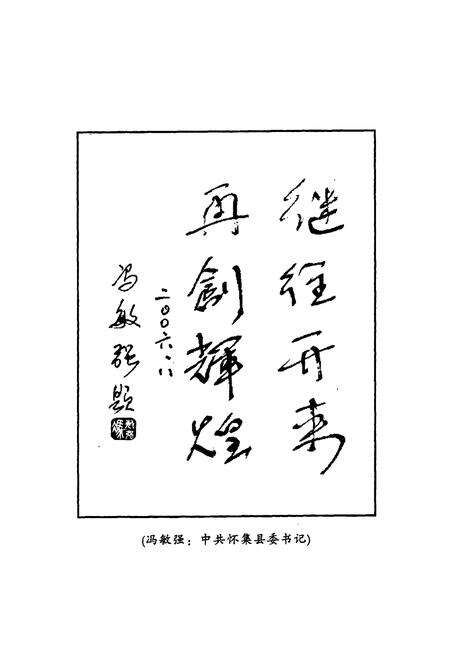 继往开来
再創輝煌
二〇〇六.八
冯敏强题
(冯敏强：中共怀集县委书记)